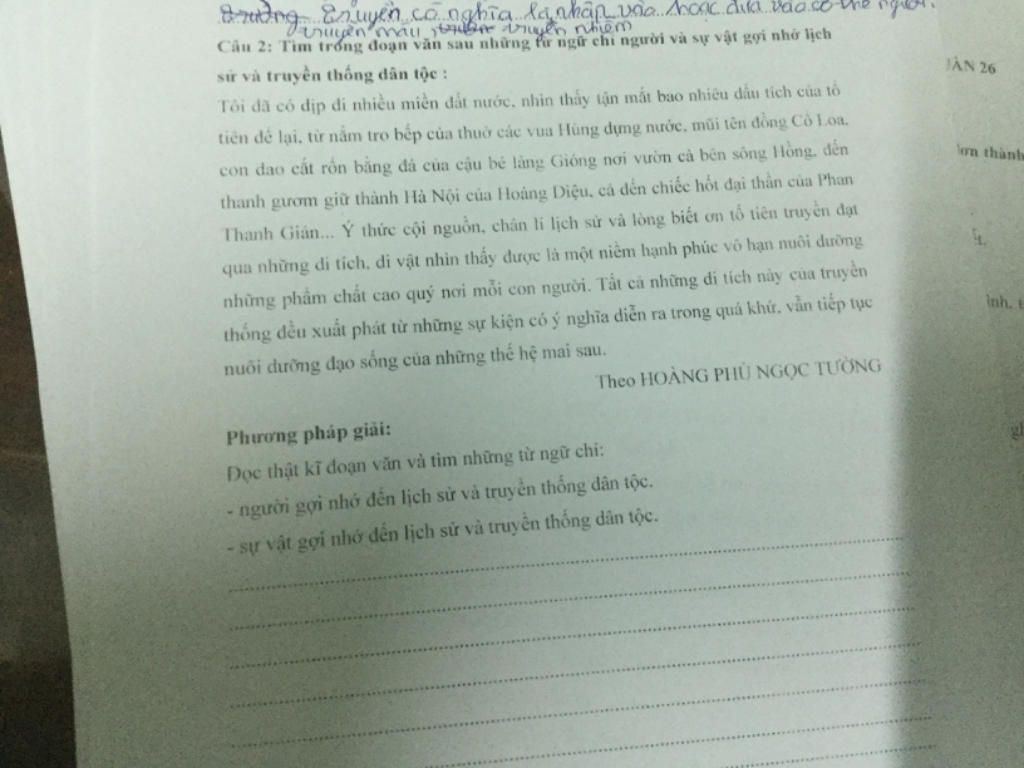 Truyền có nghĩa là nhập vào hoặc đưa vào cơ thể người.
truyền máu, truyền nhiễm
Câu 2: Tìm trong đoạn văn sau những từ ngữ chỉ người và sự vật gợi nhớ lịch
sử và truyền thống dân tộc :
Tôi đã có dịp đi nhiều miền đất nước, nhìn thấy tận mắt bao nhiêu dấu tích của tổ
tiên để lại, từ nắm tro bếp của thuở các vua Hùng dựng nước, mũi tên đồng Cổ Loa,
con dao cắt rốn bằng đá của cậu bé làng Gióng nơi vườn cà bên sông Hồng, đến
thanh gươm giữ thành Hà Nội của Hoàng Diệu, cả đến chiếc hốt đại thần của Phan
Thanh Giản... Ý thức cội nguồn, chân lí lịch sử và lòng biết ơn tổ tiên truyền đạt
qua những di tích, di vật nhìn thấy được là một niềm hạnh phúc vô hạn nuôi dưỡng
những phẩm chất cao quý nơi mỗi con người. Tất cả những di tích này của truyền
thống đều xuất phát từ những sự kiện có ý nghĩa diễn ra trong quá khứ, vẫn tiếp tục
nuôi dưỡng đạo sống của những thế hệ mai sau.
Theo HOÀNG PHỦ NGỌC TƯỜNG
Phương pháp giải:
Đọc thật kĩ đoạn văn và tìm những từ ngữ chỉ:
- người gợi nhớ đến lịch sử và truyền thống dân tộc.
- sự vật gợi nhớ đến lịch sử và truyền thống dân tộc.
ẦN 26
thành